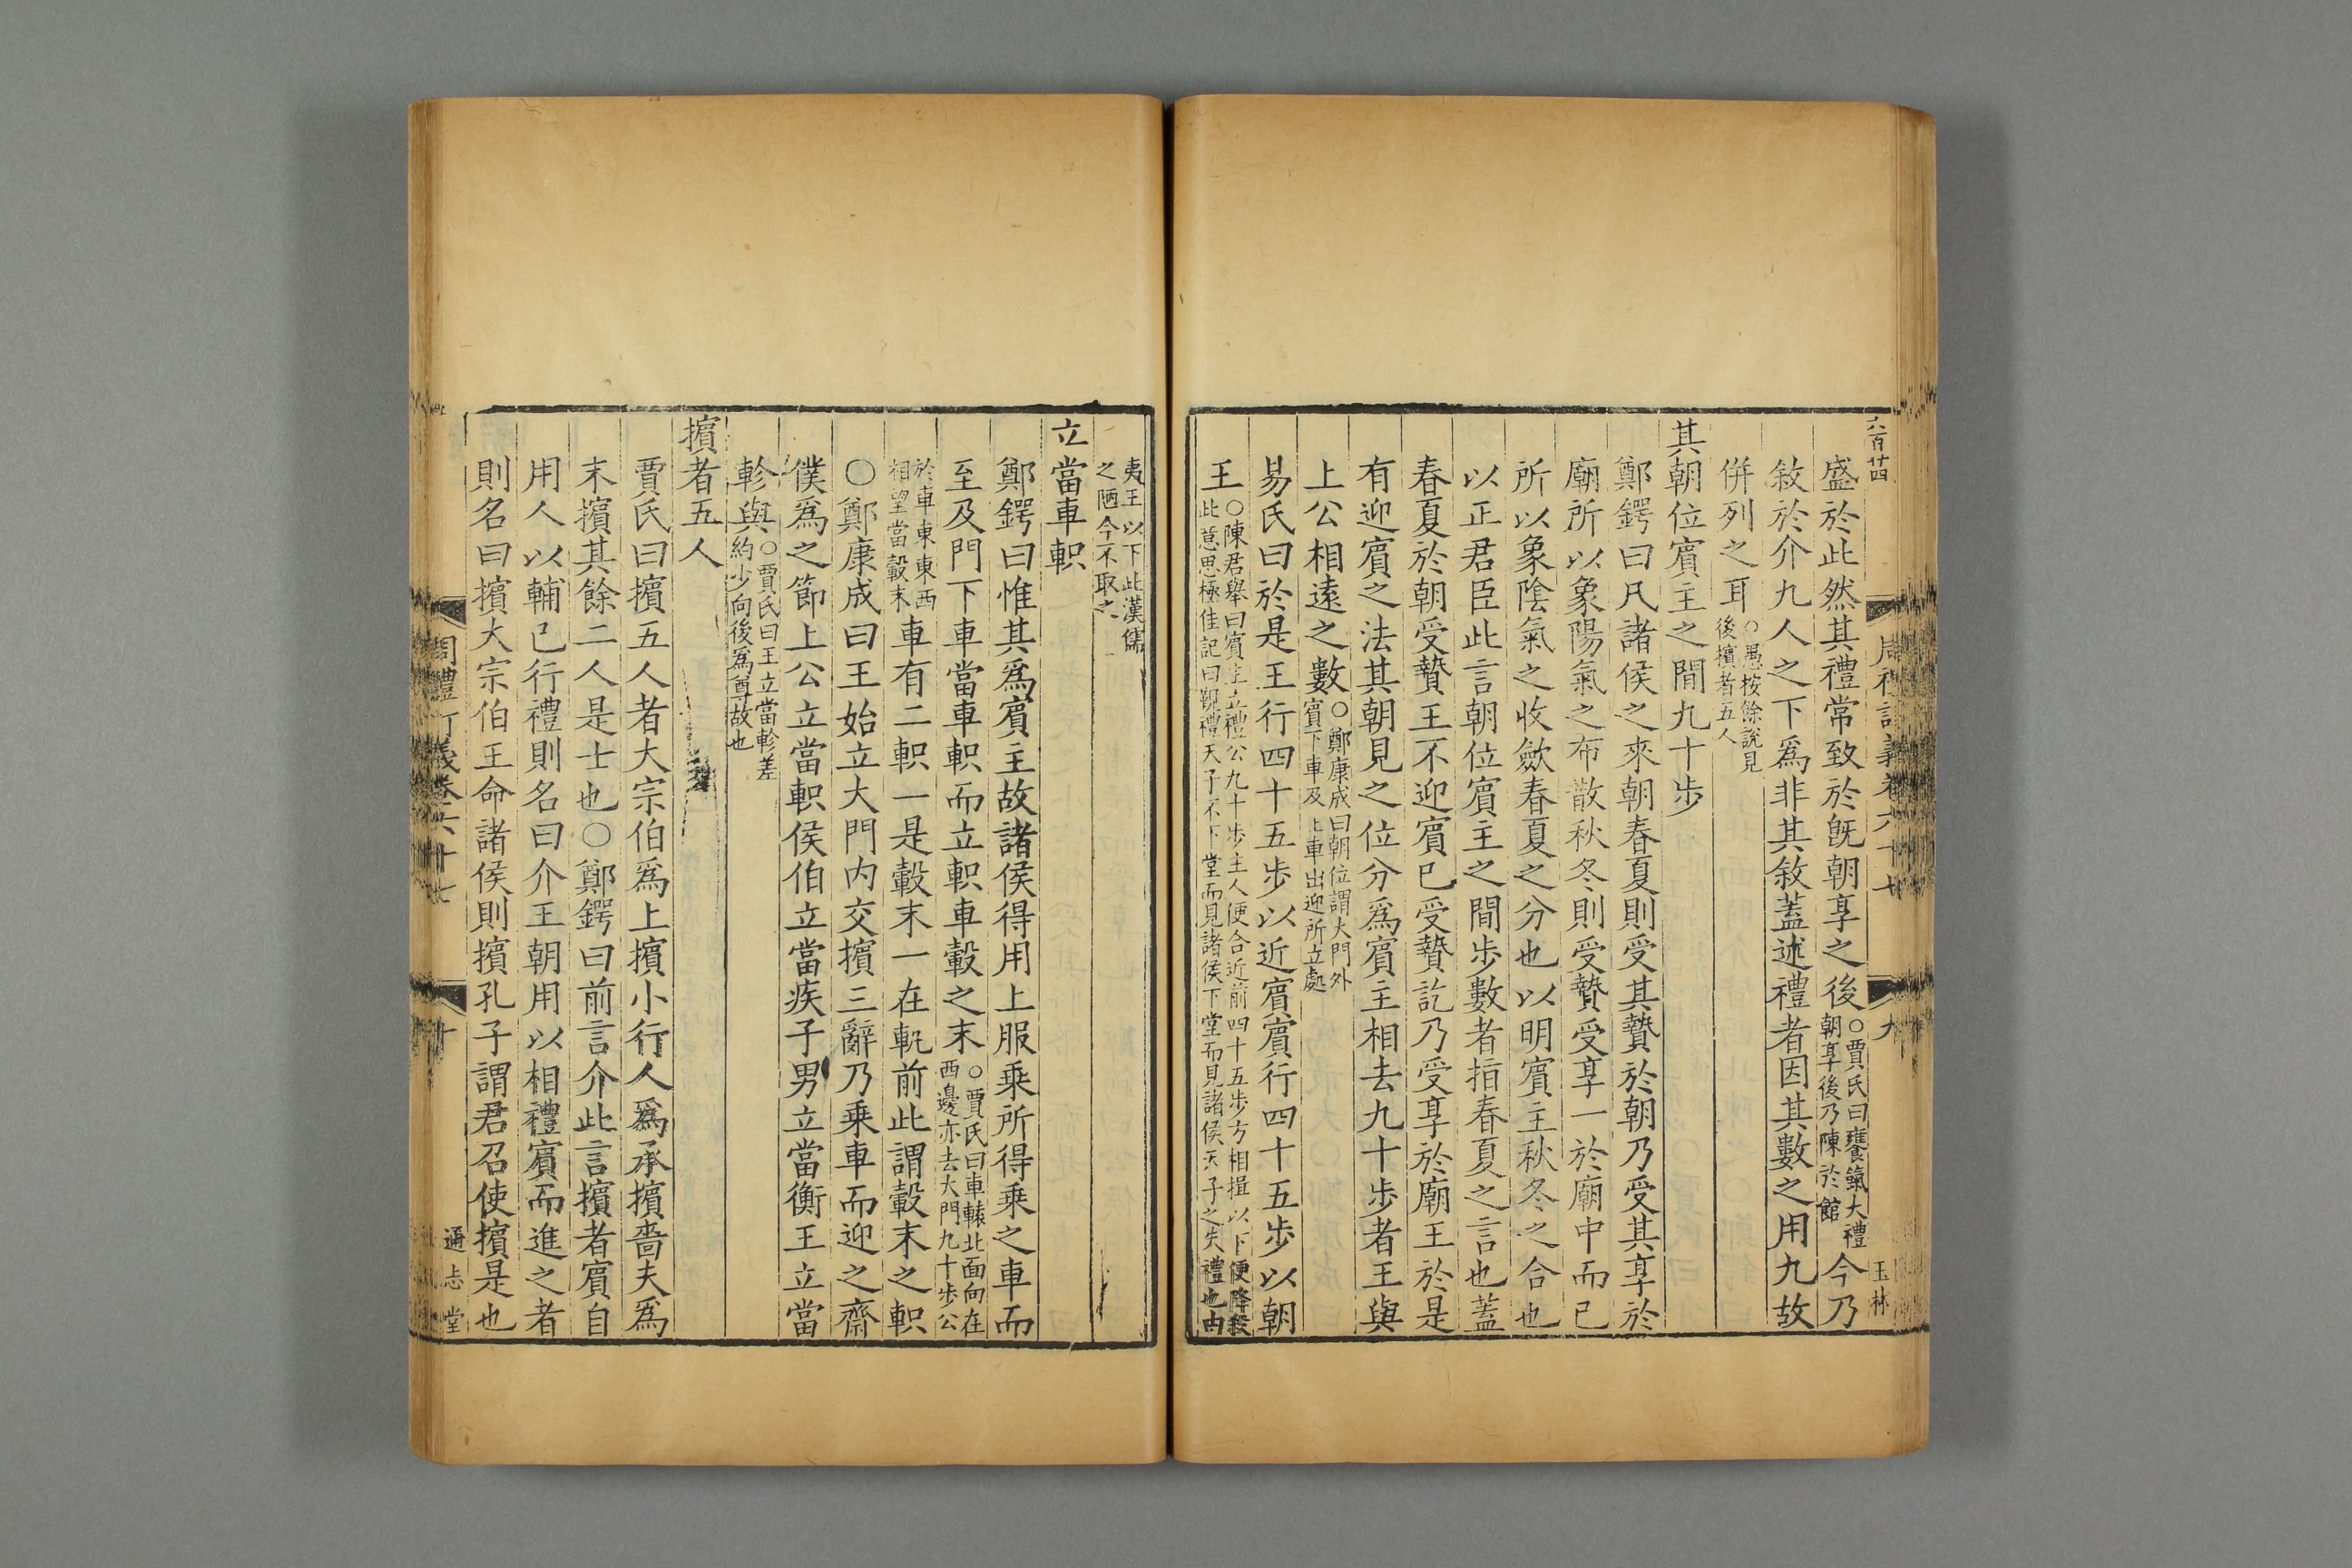 六百廿四
盛於此然其禮常致於旣朝享之後○賈氏曰饔餼大禮朝享後乃陳於館今乃
敘於介九人之下爲非其敘蓋述禮者因其數之用九故
併列之耳○愚按餘說見後擯者五人
其朝位賓主之間九十步
鄭鍔曰凡諸侯之來朝春夏則受其贄於朝乃受其享於
廟所以象陽氣之布散秋冬則受贄受享一於廟中而已
所以象陰氣之收斂春夏之分也以明賓主秋冬之合也
以正君臣此言朝位賓主之間步數者指春夏之言也蓋
春夏於朝受贄王不迎賓已受贄訖乃受享於廟王於是
有迎賓之法其朝見之位分爲賓主相去九十步者王與
上公相遠之數○鄭康成曰朝位謂大門外賓下車及上車出迎所立處
易氏曰於是王行四十五步以近賓賓行四十五步以朝
王○陳君舉曰賓主立禮公九十步主人便合近前四十五步方相揖以下便降殺此意思極佳記曰覲禮天子不下堂而見諸侯下堂而見諸侯天子之失禮也由
周禮訂義卷六十七
九
玉林
夷王以下此漢儒之陋今不取之
立當車軹
鄭鍔曰惟其爲賓主故諸侯得用上服乘所得乘之車而
至及門下車當車軹而立軹車轂之末○賈氏曰車轅北面向在西邊亦去大門九十步公
於車東東西相望當轂末車有二軹一是轂末一在軓前此謂轂末之軹
○鄭康成曰王始立大門內交擯三辭乃乘車而迎之齊
僕爲之節上公立當軹侯伯立當疾子男立當衡王立當
軫與○賈氏曰王立當軫差約少向後爲尊故也
擯者五人
賈氏曰擯五人者大宗伯爲上擯小行人爲承擯嗇夫爲
末擯其餘二人是士也○鄭鍔曰前言介此言擯者賓自
用人以輔己行禮則名曰介王朝用以相禮賓而進之者
則名曰擯大宗伯王命諸侯則擯孔子謂君召使擯是也
周禮訂義卷六十七
十
通志堂